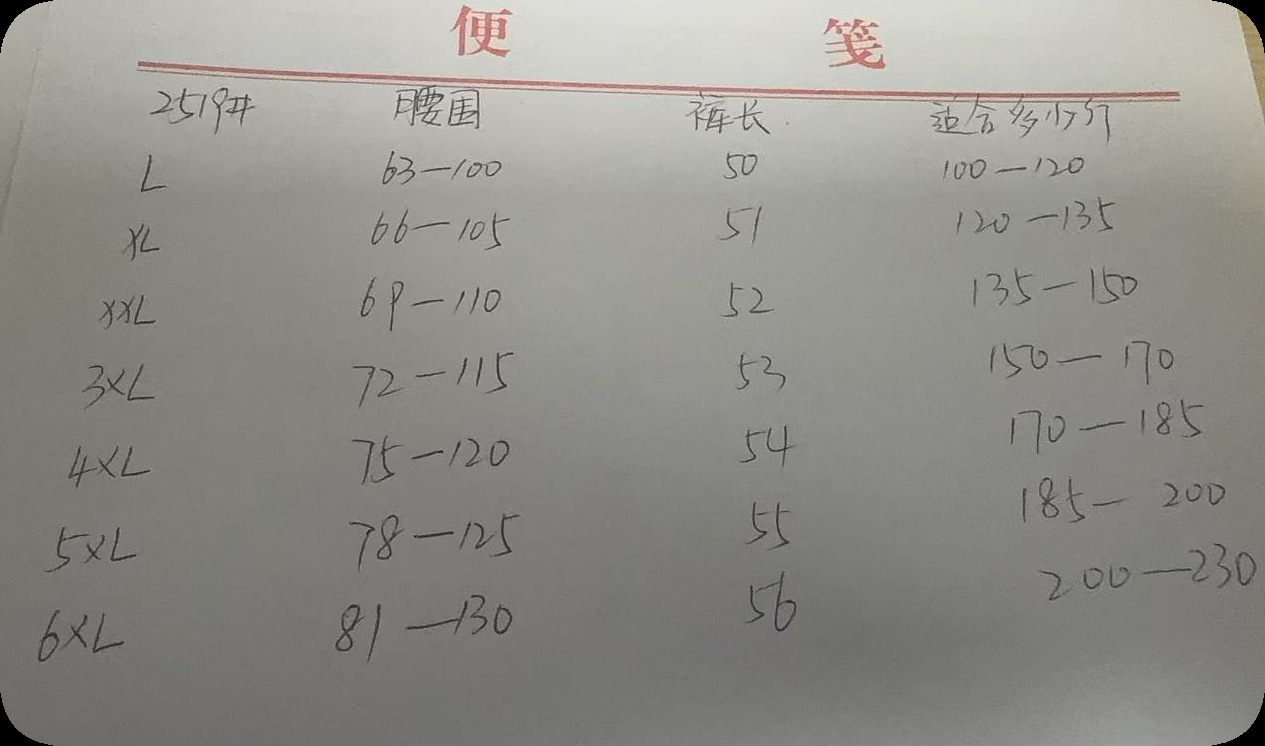 便 笺
2519# 腰围 裤长 适合多少斤
L 63—100 50 100—120
XL 66—105 51 120—135
XXL 69—110 52 135—150
3XL 72—115 53 150—170
4XL 75—120 54 170—185
5XL 78—125 55 185—200
6XL 81—130 56 200—230